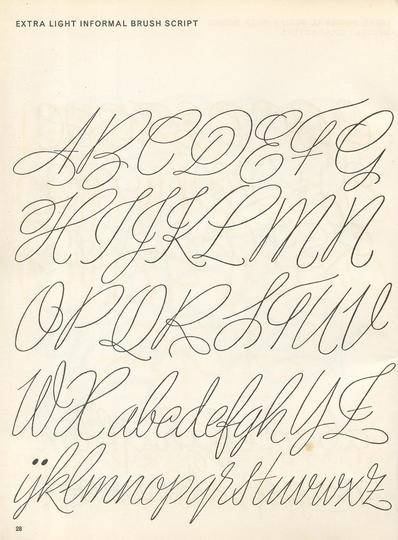 EXTRA LIGHT INFORMAL BRUSH SCRIPT
ABCDEFG
HIJKLMN
OPQRSTUV
WXabcdefghYZ
ijklmnopqrstuvwxz
28